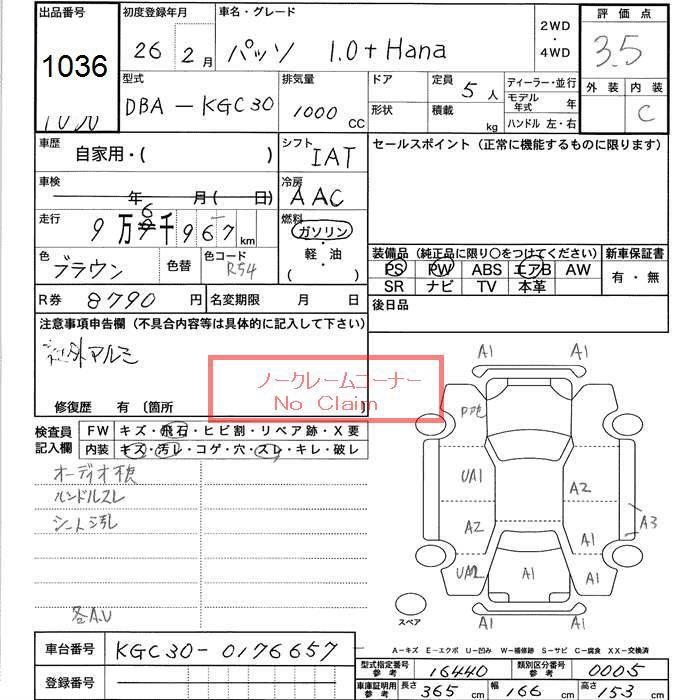 出品番号
1036
初度登録年月
26 2月
車名・グレード
パッソ 1.0+Hana
2WD
・
4WD
評価点
3.5
外装 内装
C
型式
DBA-KGC30
排気量
1000 CC
ドア
形状
定員 5人
積載 kg
ディーラー・並行
モデル年式 年
ハンドル 左・右
車歴
自家用・( )
シフト
IAT
セールスポイント (正常に機能するものに限ります)
車検
年 月(日)
冷房
AAC
走行
9万6千967km
燃料
ガソリン
・
軽油
( )
色
ブラウン
色替
色コード
R54
装備品 (純正品に限り○をつけてください)
PS PW ABS エアB AW
SR ナビ TV 本革
新車保証書
有・無
R券 8790円
名変期限 月 日
後日品
注意事項申告欄 (不具合内容等は具体的に記入して下さい)
外アルミ
ノークレームコーナー
No Claim
修復歴 有 (箇所 )
検査員記入欄
FW キズ・飛石・ヒビ割・リペア跡・X要
内装 キズ・汚レ・コゲ・穴・スレ・キレ・破レ
オーディオ欠
ハンドルスレ
シート汚レ
各A.U
A1
A1
UA1
A2
A2
A3
A1
UA2
A1
A1
A1
スペア
A-キズ E-エクボ U-凹み W-補修跡 S-サビ C-腐食 XX-交換済
車台番号
KGC30-0176657
登録番号
型式指定番号参考 16440
類別区分番号参考 0005
車庫証明用参考
長さ 365cm
幅 166cm
高さ 153cm